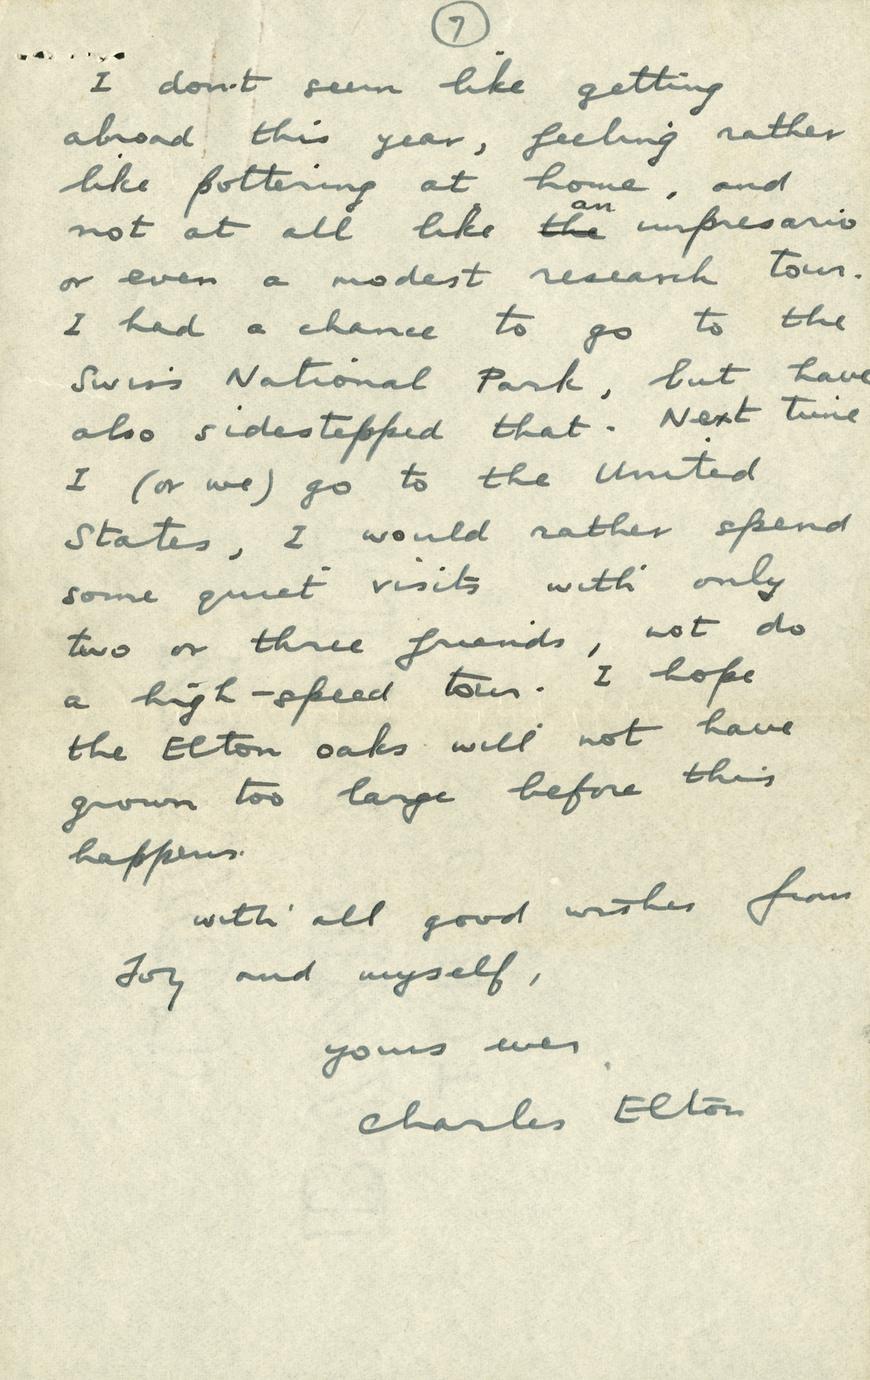 7
I don't seem like getting
abroad this year, feeling rather
like pottering at home, and
not at all like ~~the~~ an impresario
or even a modest research tour.
I had a chance to go to the
Swiss National Park, but have
also sidestepped that. Next time
I (or we) go to the United
States, I would rather spend
some quiet visits with only
two or three friends, not do
a high-speed tour. I hope
the Elton oaks will not have
grown too large before this
happens.
with all good wishes from
Joy and myself,
yours ever
Charles Elton